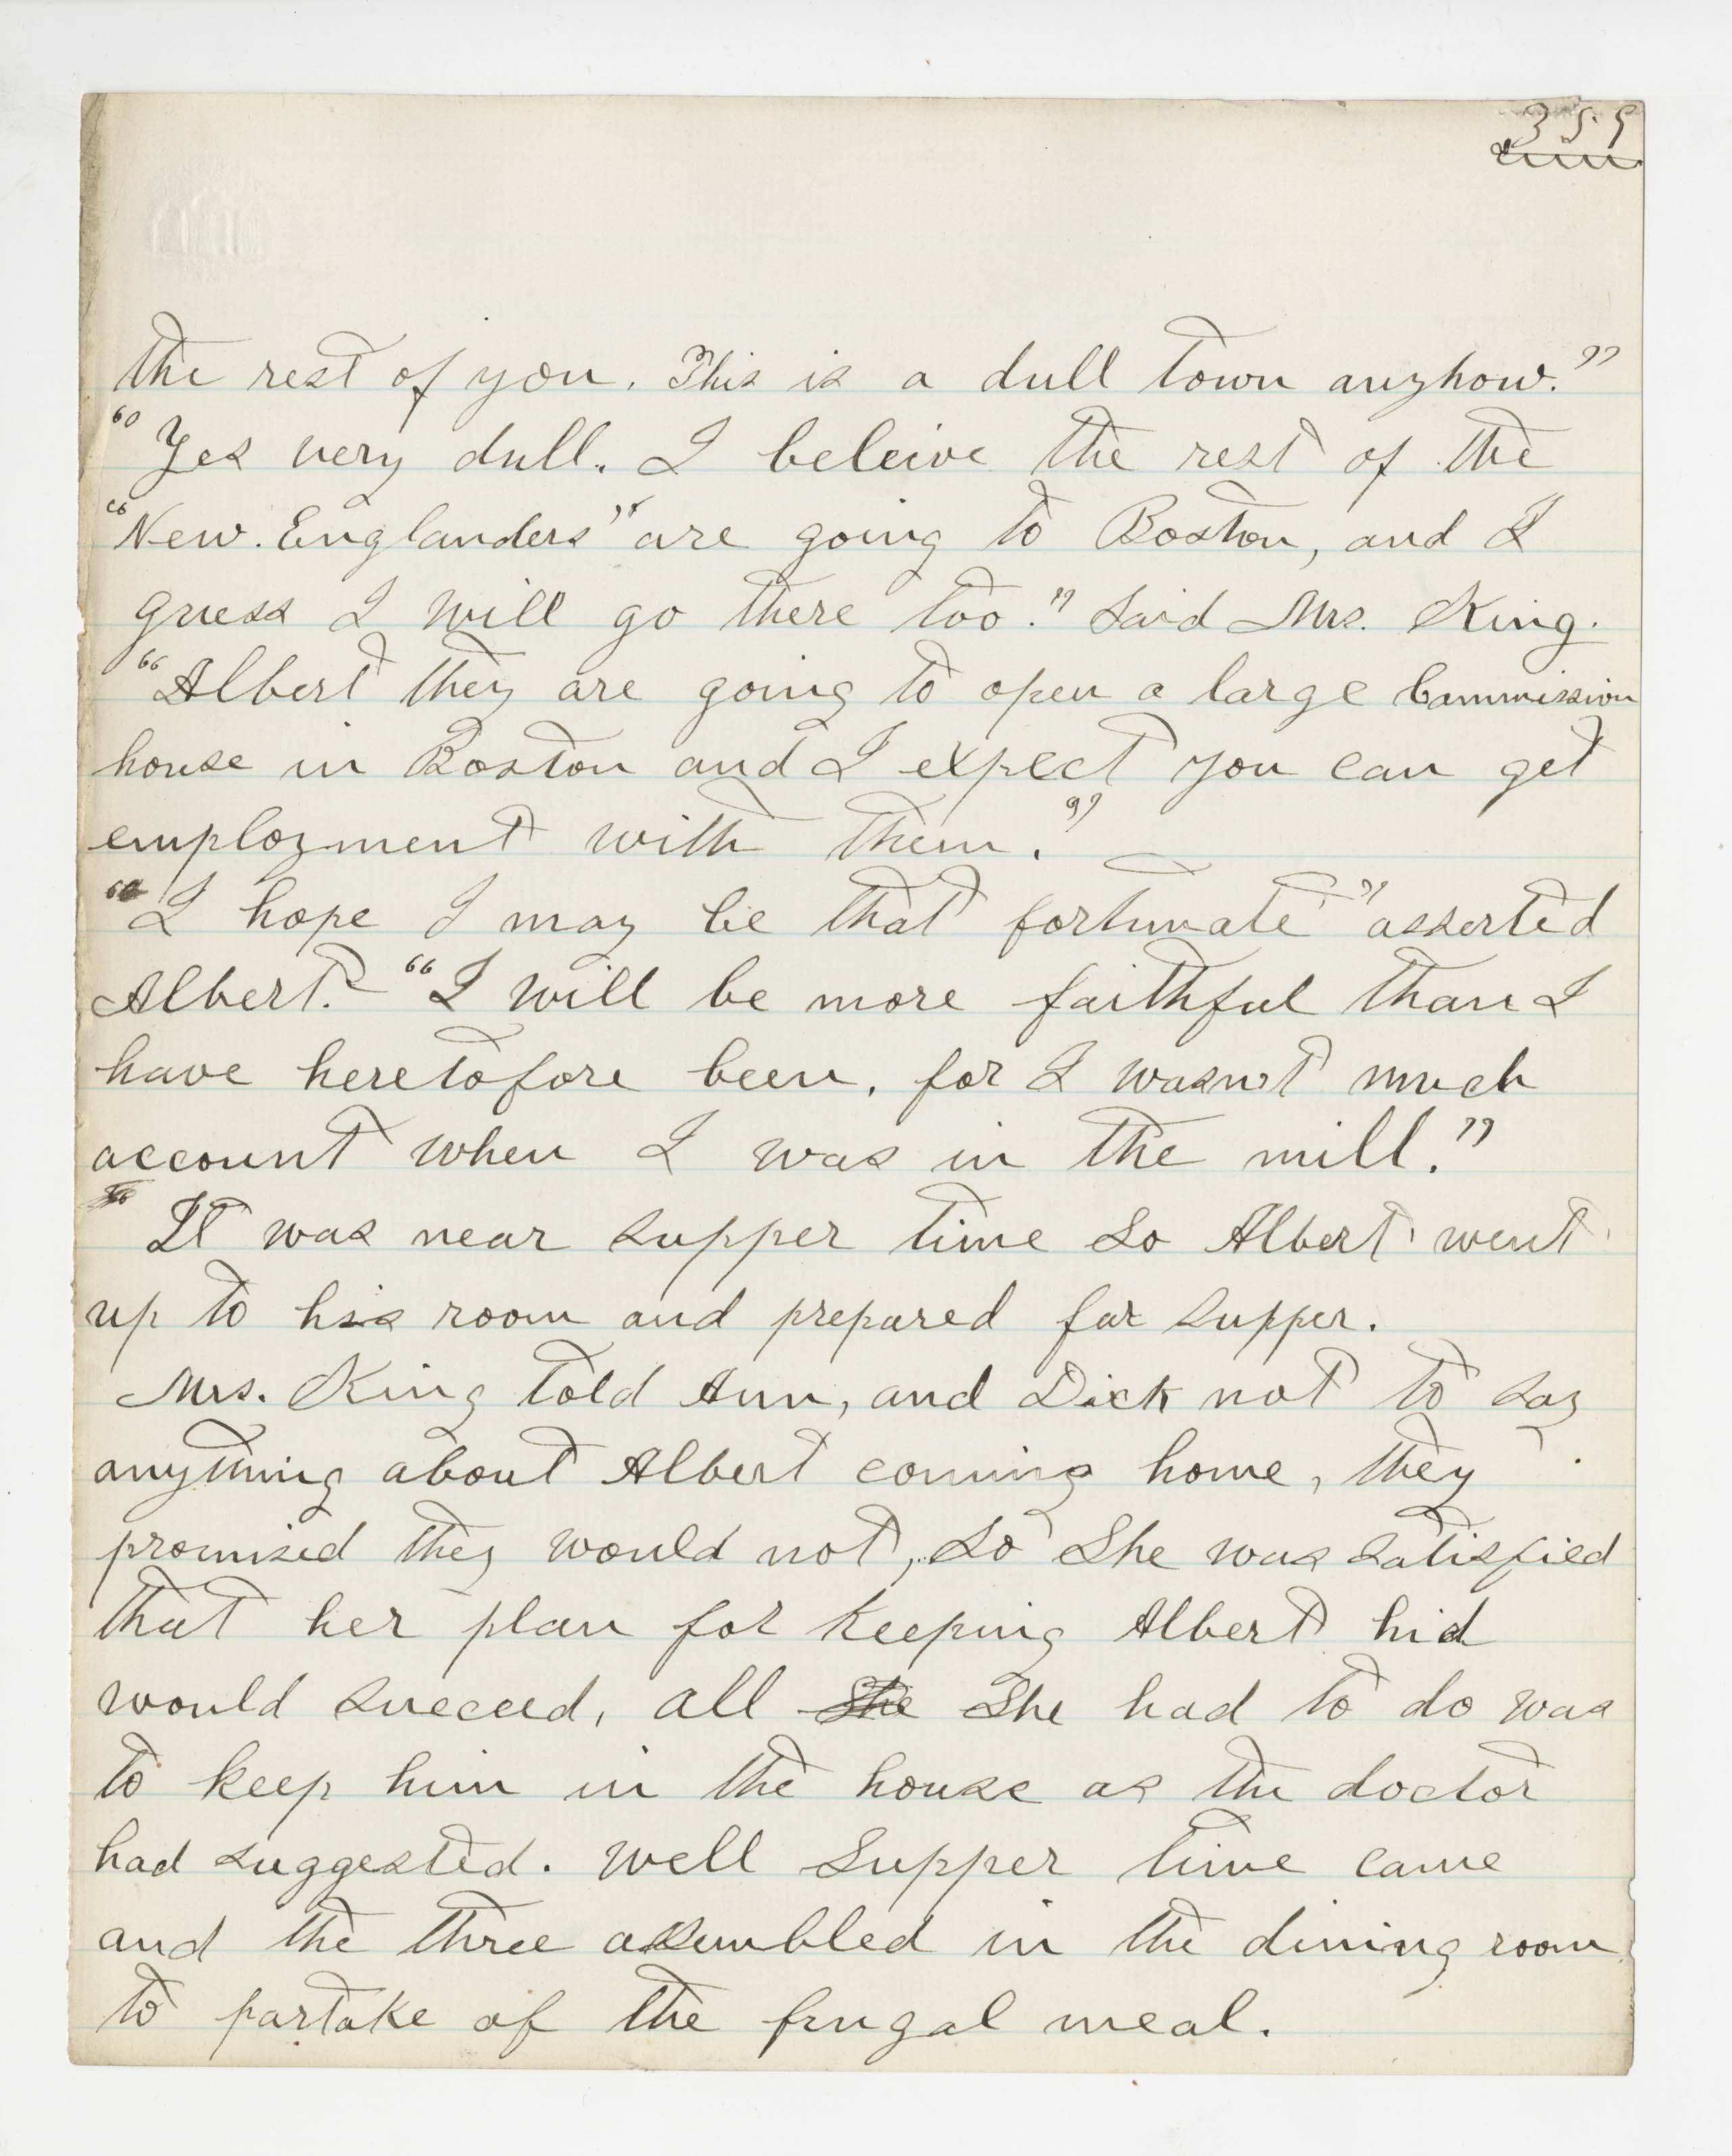 355
the rest of you. This is a dull town anyhow."
"Yes very dull. I beleive the rest of the
"New. Englanders" are going to Boston, and I
guess I will go there too." Said Mrs. King.
"Albert they are going to open a large Commission
house in Boston and I expect you can get
employment with them."
"I hope I may be that fortunate" asserted
Albert. "I will be more faithful than I
have heretofore been, for I wasn't much
account when I was in the mill."
It was near supper time so Albert went
up to his room and prepared for supper.
Mrs. King told Ann, and Dick not to say
anything about Albert coming home, they
promised they would not, So She was satisfied
that her plan for keeping Albert hid
would succeed, all She She had to do was
to keep him in the house as the doctor
had suggested. Well Supper time came
and the three assembled in the dining room
to partake of the frugal meal.